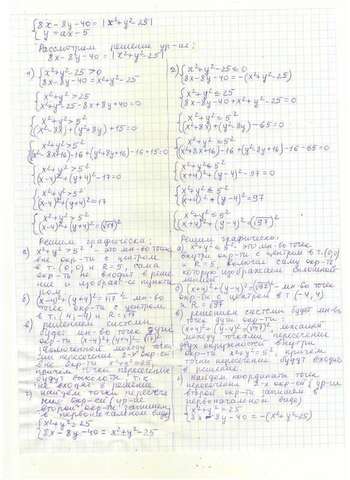 {8x - 8y - 40 = |x²+y²-25|
{y = ax - 5
Рассмотрим решение ур-ие:
8x - 8y - 40 = |x²+y²-25|
1) {x²+y²-25 > 0
{8x - 8y - 40 = x²+y²-25
{x²+y² > 25
{x²+y²-25-8x+8y+40=0
{x²+y² > 5²
{(x²-8x)+(y²+8y)+15=0
{x²+y² > 5²
{(x²-8x+16)-16+(y²+8y+16)-16+15=0
{x²+y² > 5²
{(x-4)²+(y+4)²-17=0
{x²+y² > 5²
{(x-4)²+(y+4)²=17
{x²+y² > 5²
{(x-4)²+(y+4)²=(√17)²
Решим графически:
а) x²+y² > 5² - это мн-во точек
вне окр-ти с центром
в т. (0;0) и R=5, сама
окр-ть не входит в реше
ние и
б) (x-4)²+(y+4)²=√17² - мн-во
точек окр-ти с центром
в т. (4;-4) и R=√17
в) решением системы
будет мн-во точек дуги
окр-ти (x-4)²+(y+4)²=√17²
вне окр-ти x²+y²=5²
точки пересечения
будут т.к.
не входят в решение
г) найдем точки пересече
ния окр-ей (ур-ие
второй окр-ти запишем
в первоначальном виде)
{x²+y²=25
{8x - 8y - 40 = x²+y²-25
2) {x²+y²-25 ≤ 0
{8x - 8y - 40 = -(x²+y²-25)
{x²+y² ≤ 25
{8x - 8y - 40 + x²+y²-25=0
{x²+y² ≤ 5²
{(x²+8x)+(y²-8y)-65=0
{x²+y² ≤ 5²
{(x²+8x+16)-16+(y²-8y+16)-16-65=0
{x²+y² ≤ 5²
{(x+4)²+(y-4)²-97=0
{x²+y² ≤ 5²
{(x+4)²+(y-4)²=97
{x²+y² ≤ 5²
{(x+4)²+(y-4)²=(√97)²
Решим графически:
а) x²+y² ≤ 5² - это мн-во точек
внутри окр-ти с центром в т. (0;0)
и R=5, включая саму окр-ть
которую изображаем сплошной
линией
б) (x+4)²+(y-4)²=(√97)² - мн-во точек
окр-ти с центром в т. (-4;4)
и R=√97
в) решением системы будет мн-во
точек дуги окр-ти:
(x+4)²+(y-4)²=(√97)²,
между точками пересечения
двух окружностей внутри
окр-ти x²+y²=5², причем
точки пересечения будут входить
в решение.
г) найдем координаты точек
пересечения 2-х окр-ей (ур-ие
второй окр-ти запишем в
первоначальном виде)
{x²+y²=25
{8x - 8y - 40 = -(x²+y²-25)